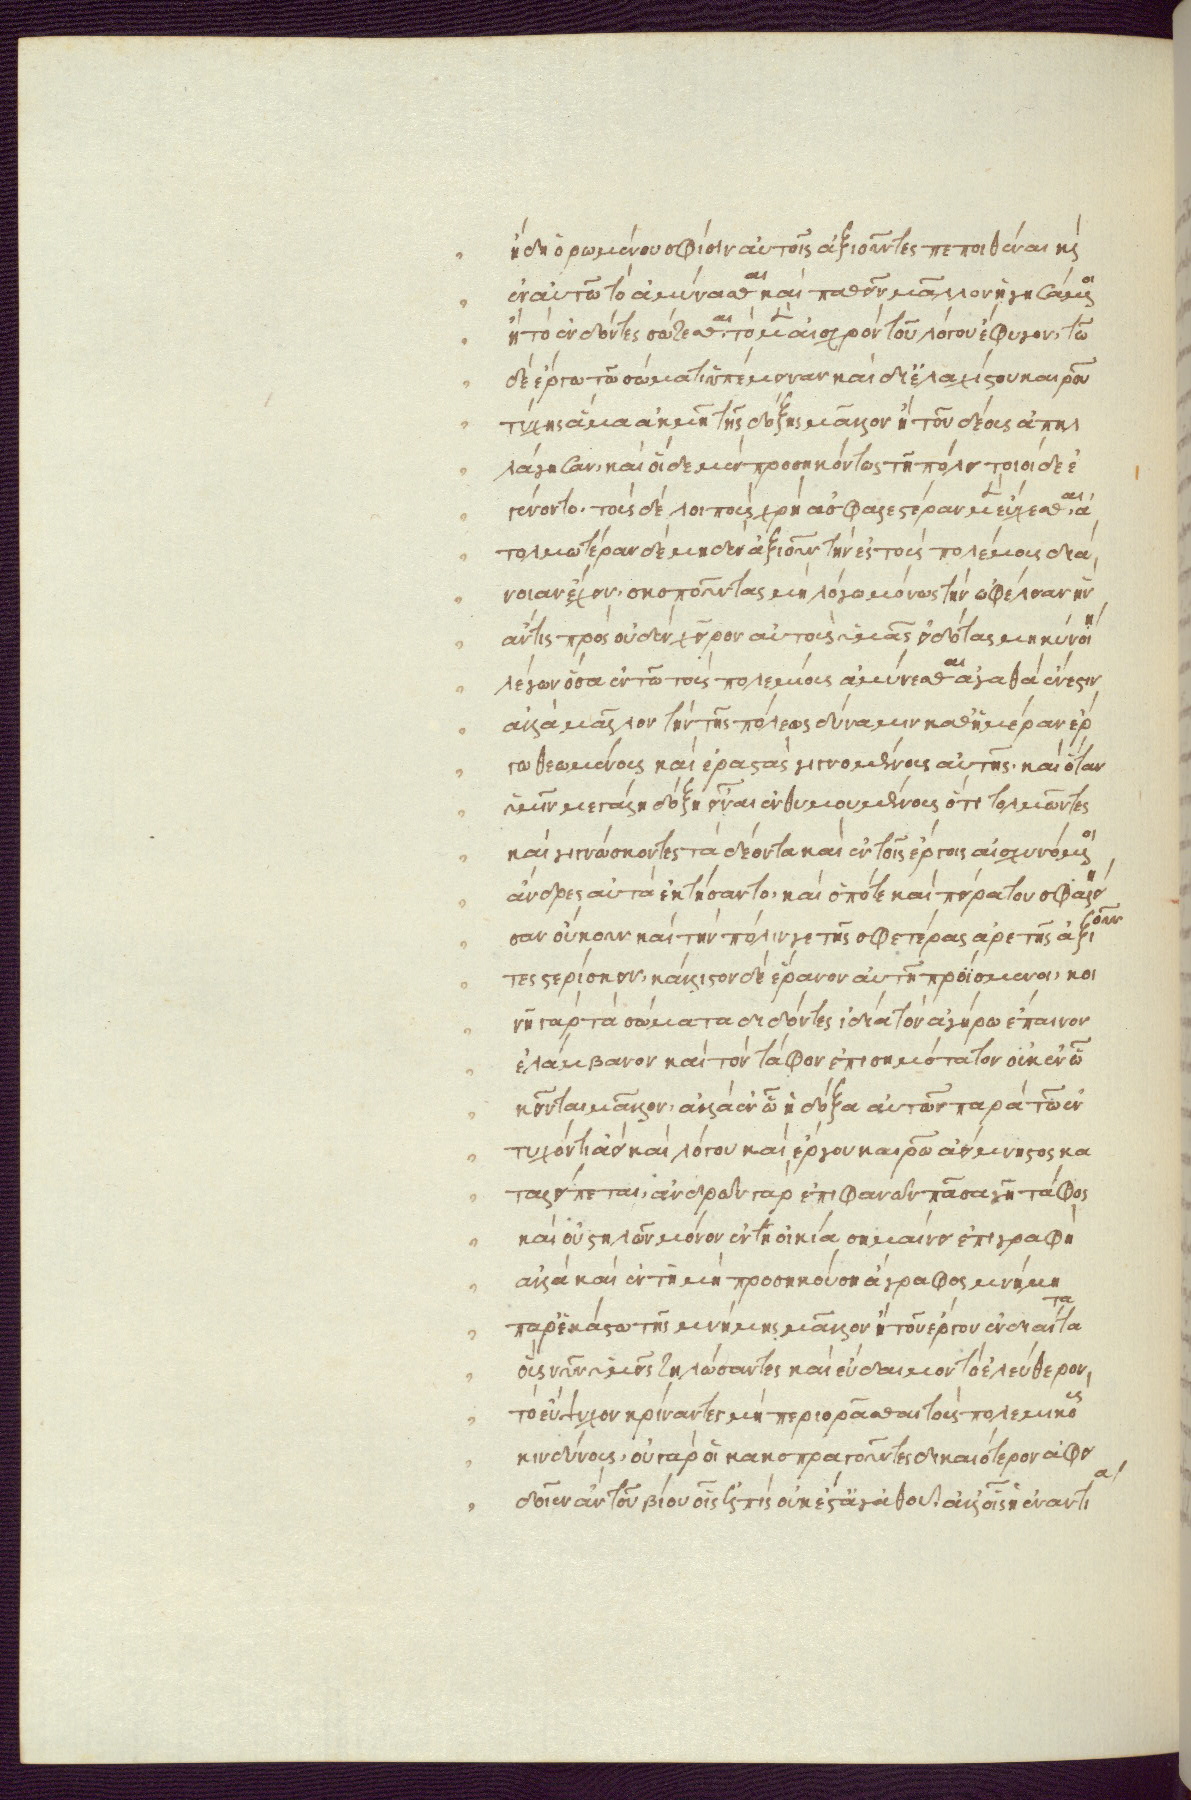 ἤδη ὁρωμένου σφίσιν αὐτοῖς ἀξιοῦντες πεποιθέναι κὶ
ἐν αὐτῶ τὸ ἀμύνασθαι καὶ παθεῖν μᾶλλον ἡγησάμενοι
ἢ τὸ ἐνδόντες σώζεσθαι, τὸ μὲν αἰσχρὸν τοῦ λόγου ἔφυγον, τῶ
δὲ ἔργω τῶ σώματι ὑπέμειναν καὶ δι' ἐλαχίστου καιροῦ
τύχης ἅμα ἀκμῆ τῆς δόξης μᾶλλον ἢ τοῦ δέους ἀπηλ
λάγησαν, καὶ οἵδε μὲν προσηκόντως τῆ πόλει τοιοίδε ἐ
γένοντο. τοὺς δὲ λοιποὺς χρὴ ἀσφαλεστέραν μὲν εὔχεσθαι, ἀ
τολμωτέραν δὲ μηδὲν ἀξιοῦν τὴν ἐς τοὺς πολεμίους διά
νοιαν ἔχειν, σκοποῦντας μὴ λόγω μόνως τὴν ὠφέλειαν ἣν
ἄν τις πρὸς οὐδὲν χεῖρον αὐτοὺς ὑμᾶς εἰδότας μηκύνοι
λέγων ὅσα ἐν τῶ τοὺς πολεμίους ἀμύνεσθαι ἀγαθὰ ἔνεστιν
ἀλλὰ μᾶλλον τὴν τῆς πόλεως δύναμιν καθ' ἡμέραν ἔρ
γω θεωμένους καὶ ἐραστὰς γιγνομένους αὐτῆς. καὶ ὅταν
ὑμῖν μεγάλη δόξη εἶναι ἐνθυμουμένους ὅτι τολμῶντες
καὶ γιγνώσκοντες τὰ δέοντα καὶ ἐν τοῖς ἔργοις αἰσχυνόμενοι
ἄνδρες αὐτὰ ἐκτήσαντο, καὶ ὁπότε καὶ πείρα του σφαλεί
σαν οὐκ οὖν καὶ τὴν πόλιν γε τῆς σφετέρας ἀρετῆς ἀξιοῦν
τες στερίσκειν, κάλλιστον δὲ ἔρανον αὐτῆ προϊέμενοι, κοι
νῆ γὰρ τὰ σώματα διδόντες ἰδία τὸν ἀγήρω ἔπαινον
ἐλάμβανον καὶ τὸν τάφον ἐπισημότατον οὐκ ἐν ὧ
κεῖνται μᾶλλον, ἀλλὰ ἐν ὧ ἡ δόξα αὐτῶν παρὰ τῶ ἐν
τυχόντι ἀεὶ καὶ λόγου καὶ ἔργου καιρῶ ἀείμνηστος κα
ταλείπεται, ἀνδρῶν γὰρ ἐπιφανῶν πᾶσα γῆ τάφος
καὶ οὐ στηλῶν μόνον ἐν τῆ οἰκία σημαίνει ἐπιγραφὴ
ἀλλὰ καὶ ἐν τῆ μὴ προσηκούση ἄγραφος μνήμη
παρ' ἑκάστω τῆς μνήμης μᾶλλον ἢ τοῦ ἔργου ἐνδιαιτᾶται
οὓς νῦν ὑμεῖς ζηλώσαντες καὶ εὔδαιμον τὸ ἐλεύθερον,
τὸ εὔψυχον κρίναντες μὴ περιορᾶσθαι τοὺς πολεμικοὺς
κινδύνους, οὐ γὰρ οἱ κακοπραγοῦντες δικαιότερον ἀφει
δοῖεν ἂν τοῦ βίου οἷς ἐλπὶς οὐκ ἔστ' ἀγαθοῦ. ἀλλ' οἷς ἡ ἐναντία